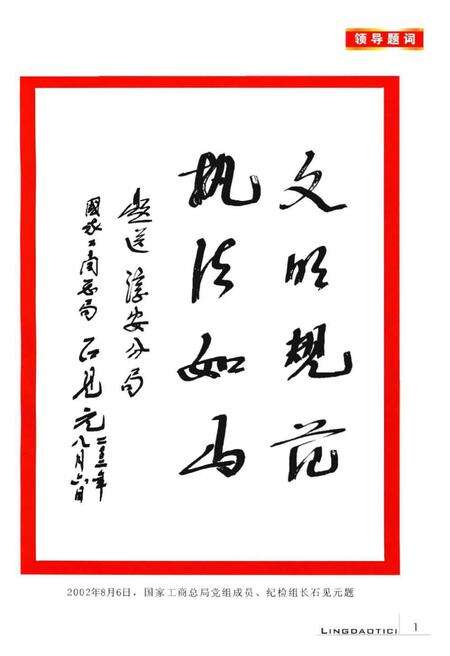 领导题词
文明规范
执法如山
题送 淳安分局
國家工商总局 石见元
二〇〇二年
八月六日
2002年8月6日，国家工商总局党组成员、纪检组长石见元题
LINGDAOTICI 1